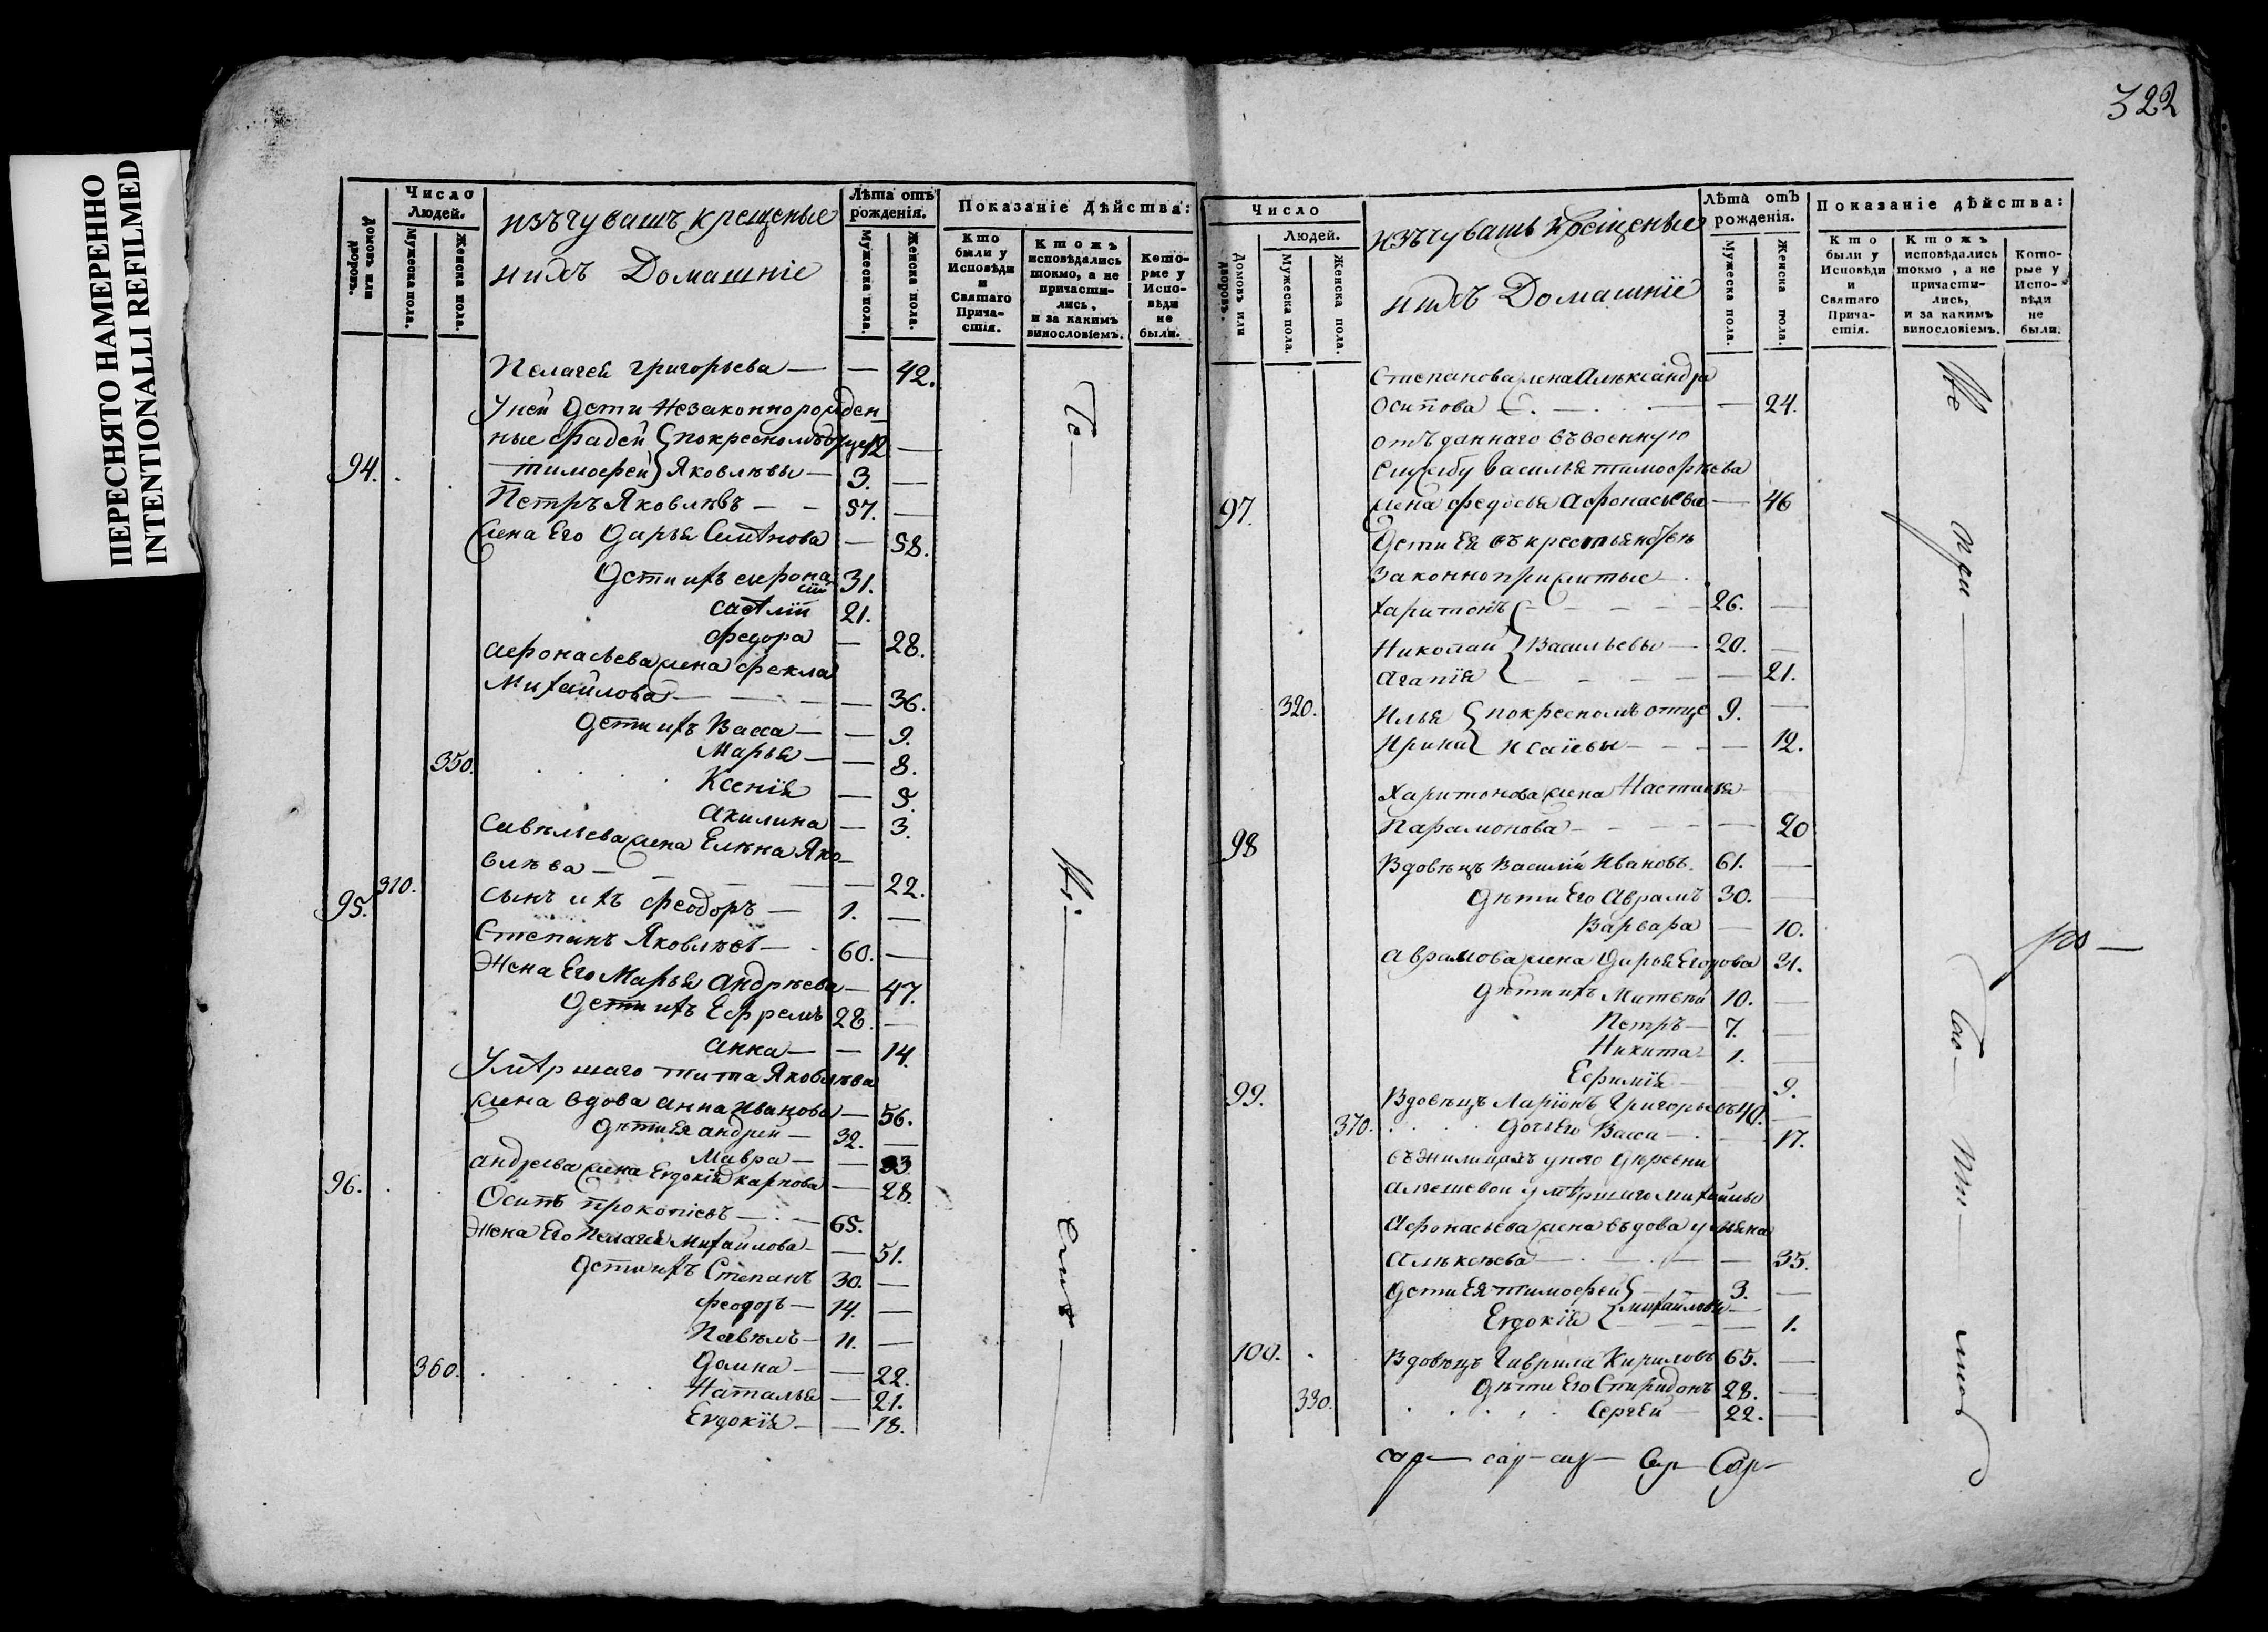 ПЕРЕСНЯТО НАМЕРЕННО
INTENTIONALLI REFILMED
322
Домовъ или дворовъ.
Число Людей.
Мужеска пола.
Женска пола.
изъ чувашъ крещеные
и ихъ Домашніе
Лѣта отъ рожденія.
Мужеска пола.
Женска пола.
Показаніе Дѣйства:
Кто были у Исповѣди и Святаго Причастія.
Ктожъ исповѣдались токмо, а не причастились, и за какимъ винословіемъ.
Которые у Исповѣди не были.
Пелагея григорьева — — 42.
У ней дети незаконнорожден
ные фадей покресномъ отце 12 —
94. тимофей Яковлѣвы — 3. —
Петръ Яковлѣвъ — — 57. —
жена Его дарья Симѣнова — 58.
дети ихъ афона
сій 31.
савѣлій 21.
федора — 28.
афонасьева жена фекла
михайлова — — 36.
дети ихъ Васса — — 9.
Марья — — 8.
350. Ксенія — 5.
акилина — 3.
савѣльева жена Елѣна Яко
влѣва — — 22.
310.
95. сынъ ихъ феодоръ — 1. —
Степанъ Яковлѣвъ — 60. —
Жена Его Марья андрѣева — 47.
дети ихъ Ефремъ 28. —
анна — — 14.
Умѣршаго тита Яковлѣва
жена вдова анна иванова — 56.
дѣти Ея андрей — 32. —
Мавра — — 33
андреева жена Евдокія карпова — 28.
96. Осипъ прокопіевъ — 65.
Жена Его пелагея михайлова — — 51.
дети ихъ Степанъ 30. —
феодоръ — 14. —
Павѣлъ — 11. —
360. домна — — 22.
Наталья — 21.
Евдокія — — 18.
Число
Людей.
Домовъ или дворовъ.
Мужеска пола.
Женска пола.
изъ чувашъ крещеные
и ихъ Домашніе
Лѣта отъ рожденія.
Мужеска пола.
Женска пола.
Показаніе дѣйства:
Кто были у Исповѣди и Святаго Причастія.
Ктожъ исповѣдались токмо, а не причастились, и за какимъ винословіемъ.
Которые у Исповѣди не были.
Степанова жена Алѣксандра
Осипова — — 24.
отъданнаго въ военную
службу василья тимофѣева
97. жена федосья афонасьева — 46
дети Ея въ крестьянствѣ
законно прижитые
харитонъ — — 26. —
Николай Васильевы — 20. —
агапія — — 21.
320. Илья покресномъ отце 9. —
Ирина исаіевы — — 12.
Харитонова жена Настасья
парамонова — — 20
98 Вдовѣцъ Василій Ивановъ. 61. —
дѣти Его Аврамъ 30. —
Варвара — 10.
аврамова жена дарья Егорова 31.
дѣти ихъ Матвѣй 10. —
Петръ — 7. —
Никита — 1. —
Ефимія — 9.
99. Вдовѣцъ Ларіонъ Григорьевъ 40. —
370. дочь Его Васса — — 17.
въ жилищахъ у него дѣревни
умѣршаго михайлы
Афонасьева жена въдова ульяна
алѣксѣева — — 35.
дети Ея тимофей — 3. —
Евдокія михайловы — 1.
100. Вдовѣцъ Гаврила Кириловъ 65. —
дѣти Его Спиридонъ 28. —
330. Сергей — 22. —